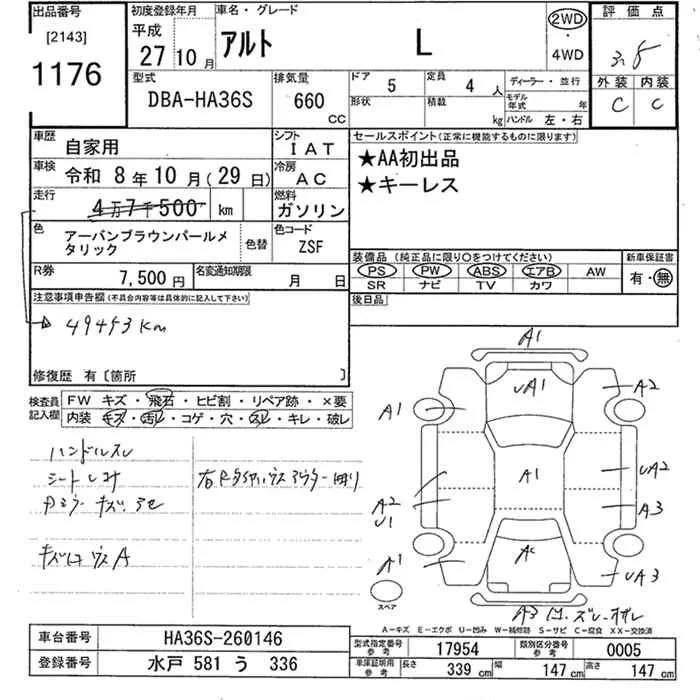 出品番号
[2143]
1176
初度登録年月
平成
27 10月
車名・グレード
アルト L
2WD
・
4WD
評価点
3.5
外装 内装
C C
型式
DBA-HA36S
排気量
660
CC
ドア 5
形状
定員 4人
積載 kg
ディーラー・並行
モデル年式 年
ハンドル 左・右
車歴 自家用
シフト IAT
車検 令和 8年10月(29日)
冷房 AC
走行 4万7千500 km
燃料 ガソリン
色 アーバンブラウンパールメタリック
色替
色コード ZSF
R券 7,500円
名変通知期限 月 日
セールスポイント(正常に機能するものに限ります)
★AA初出品
★キーレス
装備品(純正品に限り○をつけてください)
PS PW ABS エアB AW
SR ナビ TV カワ
新車保証書
有・無
後日品
注意事項申告欄(不具合内容等は具体的に記入して下さい)
49453km
修復歴 有〔箇所 〕
検査員記入欄
FW キズ・飛石・ヒビ割・リペア跡・×要
内装 キズ・汚レ・コゲ・穴・スレ・キレ・破レ
ハンドルスレ
シートシミ
キズ
A1
A1
A2
A1
UA1
A1
UA2
A2
U1
A3
A1
UA3
スペア
A3
A-キズ E-エクボ U-凹み W-補修跡 S-サビ C-腐食 XX-交換済
車台番号 HA36S-260146
登録番号 水戸 581 う 336
型式指定番号 参考 17954
類別区分番号 参考 0005
車庫証明用 参考 長さ 339cm 幅 147cm 高さ 147cm